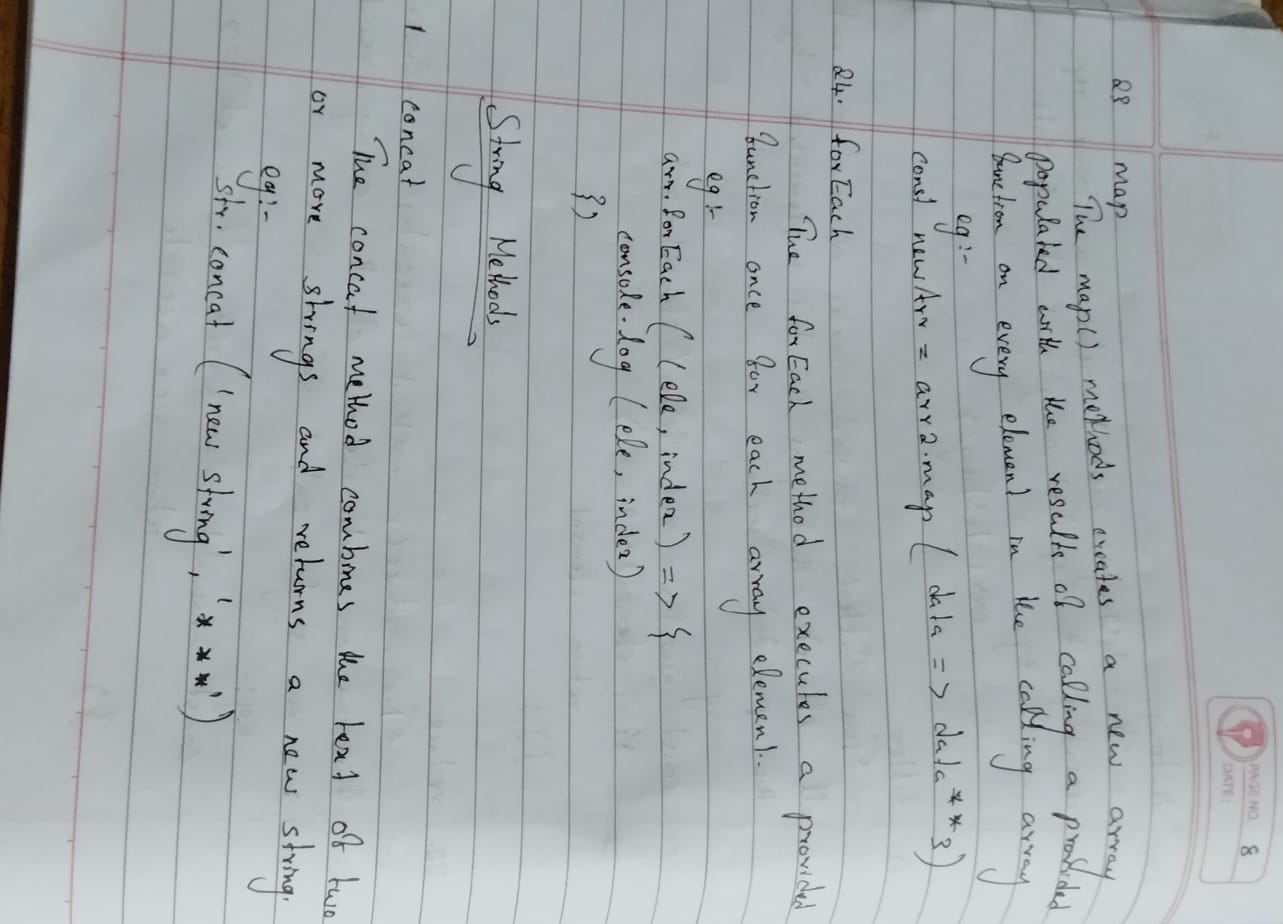 PAGE NO. 8
DATE:
23 map
The map() methods creates a new array
populated with the results of calling a provided
function on every element in the calling array
eg:-
const newArr = arr2.map ( data => data**3)
24. forEach
The forEach method executes a provided
function once for each array element.
eg:-
arr.forEach ( (ele, index) => {
console.log (ele, index)
})
String Methods
1 concat
The concat method combines the text of two
or more strings and returns a new string.
eg:-
str.concat ('new string', '***')